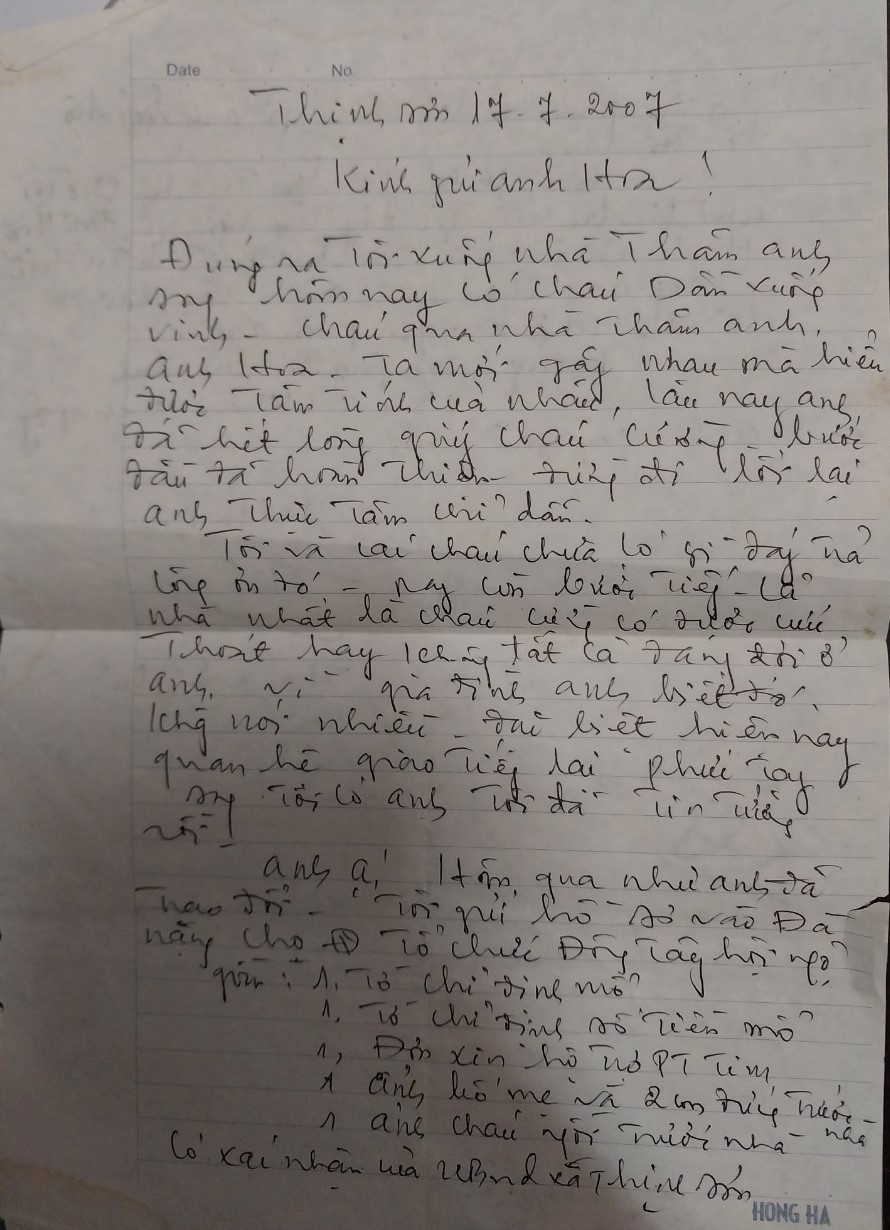 Date No.
Thịnh Sơn 17.7.2007
Kính gửi anh Hoa!
Đúng ra Tôi xuống nhà Thăm anh
song hôm nay có cháu Dần xuống
Vinh - cháu qua nhà thăm anh.
anh Hoa. Ta mới gặp nhau mà hiểu
được Tâm Tính của nhau, lâu nay anh
đã hết lòng giúp cháu Cương bước
đầu đã hoàn thiện - đường đi lối lại
anh Thực Tâm chỉ dẫn.
Tôi và các cháu chưa có gì đáp trả
công ơn đó - nay còn bước tiếp - Cả
nhà nhất là cháu cũng có được cứu
Thoát hay không tất cả đang đợi ở
anh. Vì gia đình anh biết đó.
Không nói nhiều - đặc biệt hiện nay
quan hệ giao tiếp lại phức tạp
song Tôi có anh Tôi đã Tin Tưởng
rồi!
anh ạ! Hôm qua như anh đã
Trao đổi - Tôi gửi hồ sơ vào Đà
nẵng cho Tổ chức Đông Tây hội ngộ
gồm: 1. Tờ chỉ định mổ
1. Tờ chỉ định số Tiền mổ
1, Đơn xin hỗ trợ PT Tim
1 ảnh bố mẹ và 2 con đứng trước nhà
1 ảnh cháu ngồi trước nhà
Có xác nhận của UBnd xã Thịnh Sơn
HONG HA